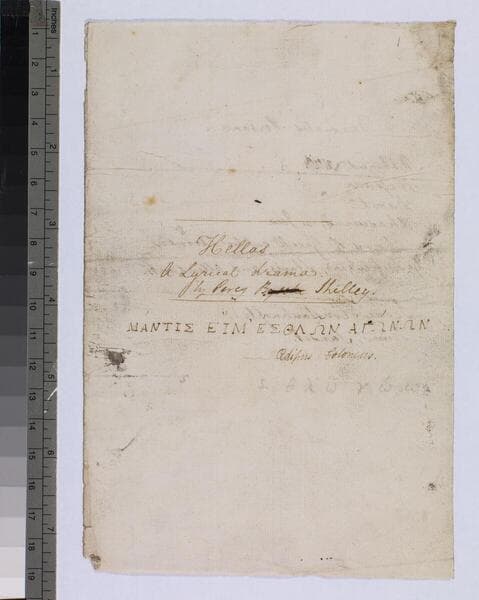 1
Hellas
A Lyrical drama
By Percy Shelley.
ΜΑΝΤΙΣ ΕΙΜ' ΕΣΘΛΩΝ ΑΓΩΝΩΝ
Œdipus Coloneus.
inches
1
2
3
4
5
6
7
1
2
3
4
5
6
7
8
9
10
11
12
13
14
15
16
17
18
19